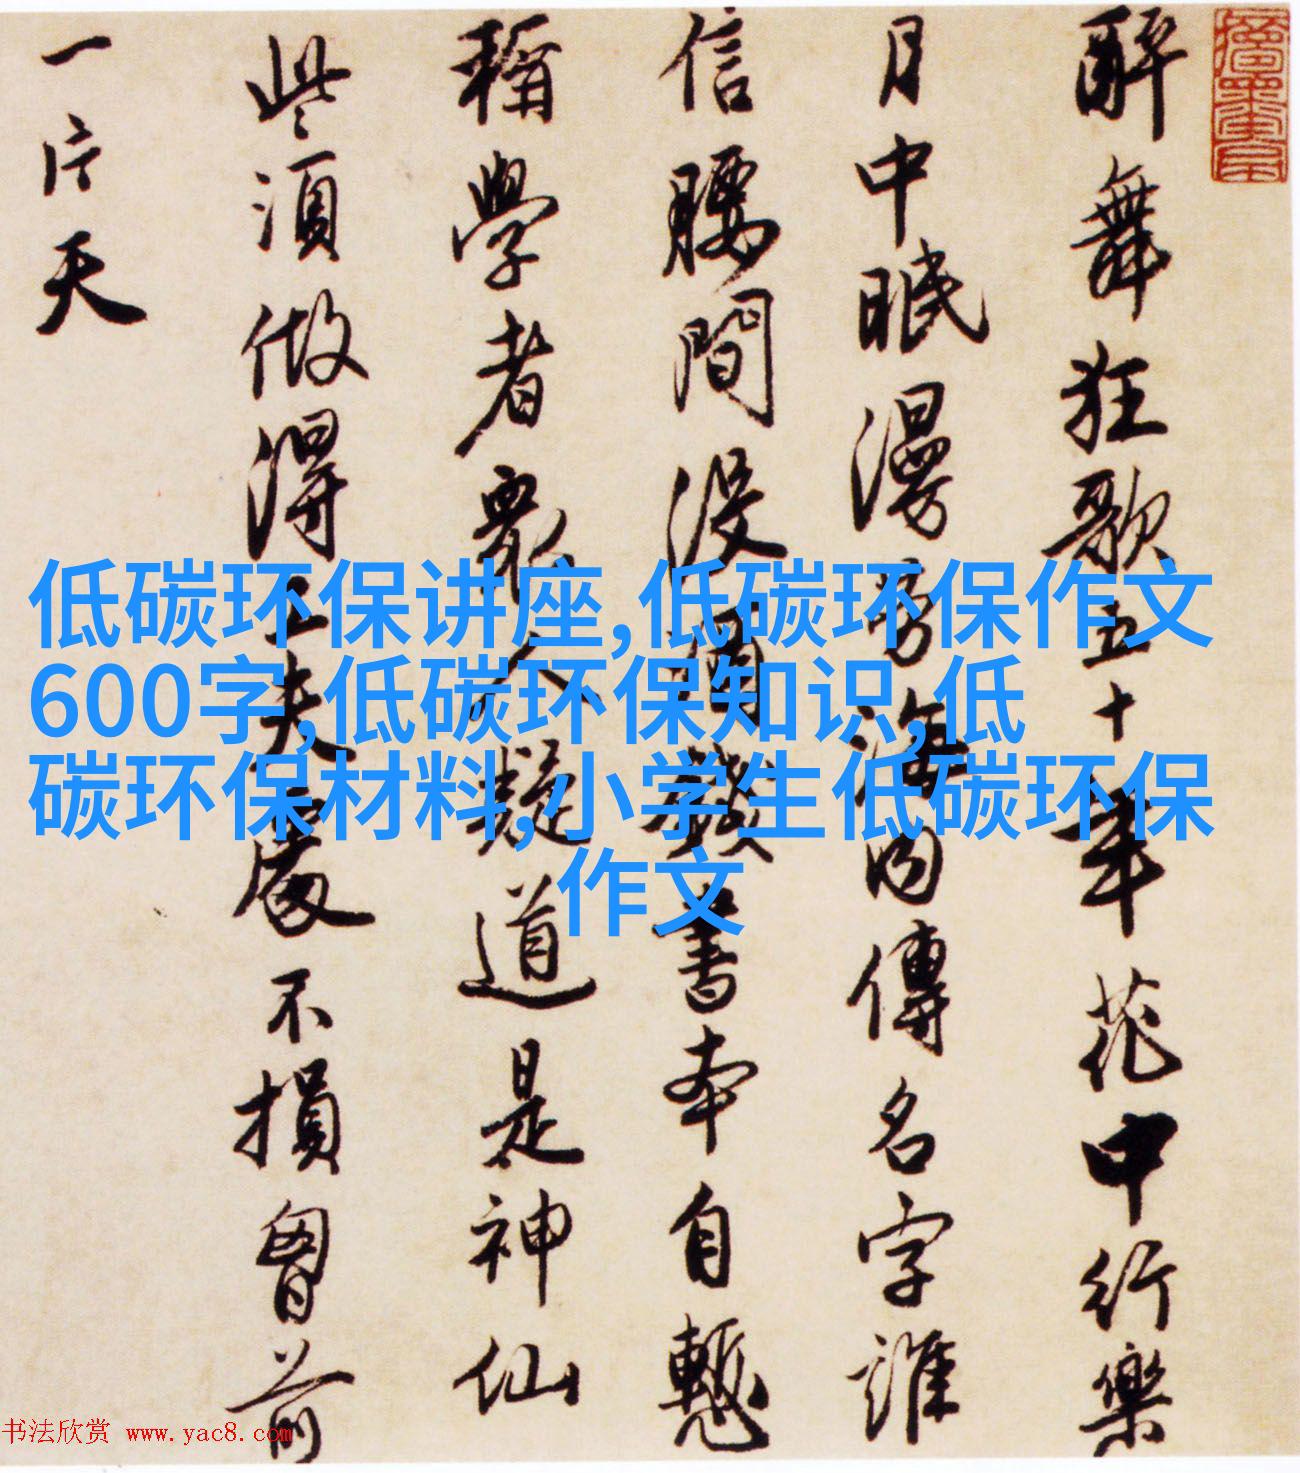 醉舞狂歌五十年花中行樂
月中眠漫勞海内傳名字誰
信腰間沒個錢書本自慙
稱學者衆人疑道是神仙
些須做得工夫處不損胷前
一片天
低碳环保讲座,低碳环保作文
600字,低碳环保知识,低
碳环保材料,小学生低碳环保
作文
书法欣赏 www.yac8.com